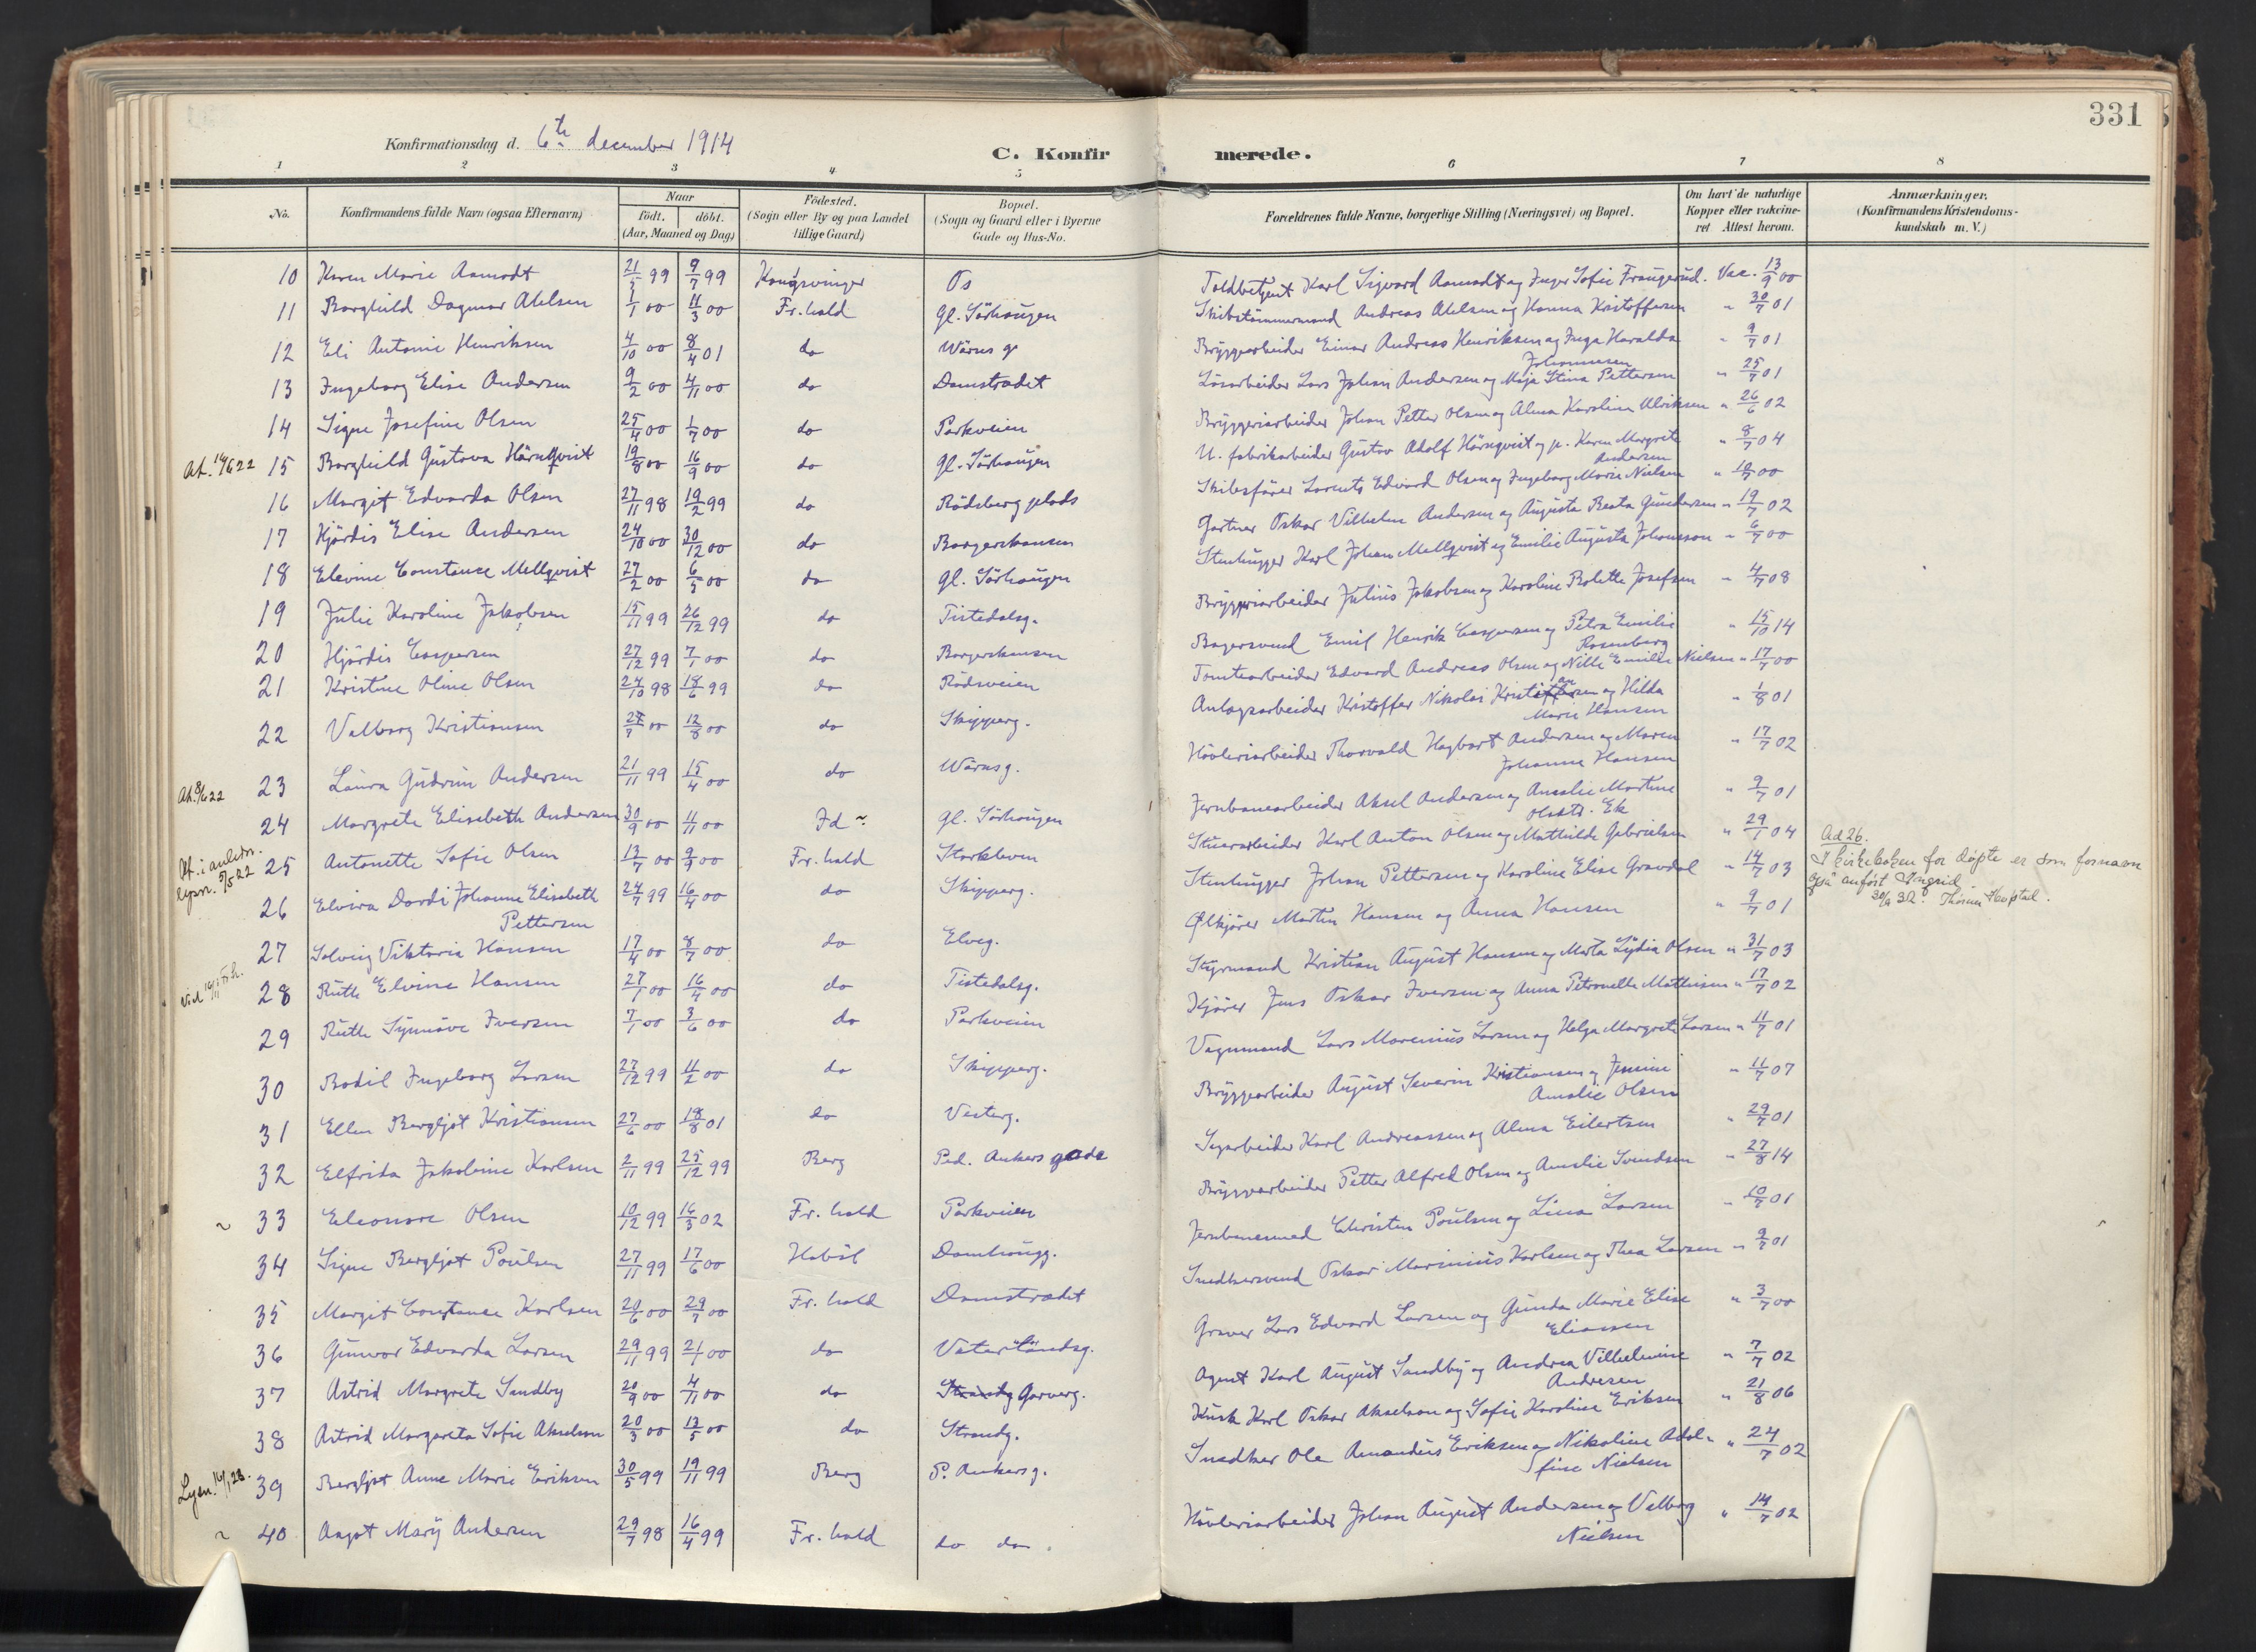 331
Konfirmationsdag d. 6te december 1914
C. Konfirmerede.
1 2 3 4 5 6 7 8
No.
Konfirmandens fulde Navn (ogsaa Efternavn)
Naar
födt. döbt.
(Aar, Maaned og Dag)
Födested.
(Sogn eller By og paa Landet
tillige Gaard)
Bopæl.
(Sogn og Gaard eller i Byerne
Gade og Hus-No.
Forældrenes fulde Navne, borgerlige Stilling (Næringsvei) og Bopæl.
Om havt de naturlige
Kopper eller vakcine-
ret Attest herom.
Anmærkninger.
(Konfirmandens Kristendoms-
kundskab m. V.)
10 Karen Marie Aamodt 21/5 99 9/7 99 Kongsvinger Os Toldbetjent Karl Sigvard Aamodt og Inger Sofie Frangerud. Vac. 13/9 00
11 Borghild Dagmar Ahlsen 1/1 00 11/3 00 Fr.hald Gl. Sörhaugen Skibstömmermand Andreas Ahlsen og Hanna Kristoffersen " 30/7 01
12 Eli Antonie Henriksen 4/10 00 8/4 01 do Wärnsg. Bryggearbeider Einar Andreas Henriksen og Inga Haralda Johannesen " 9/7 01
13 Ingeborg Elise Andersen 9/2 00 4/11 00 do Damstrædet Lösarbeider Lars Johan Andersen og Maja Stina Pettersen " 25/7 01
14 Signe Josefine Olsen 25/4 00 1/7 00 do Parkveien Bryggeriarbeider Johan Petter Olsen og Alma Karoline Ulriksen " 26/6 02
At. 14/6 22 15 Borghild Gustava Hörnqvist 19/8 00 16/9 00 do Gl. Sörhaugen U. fabrikarbeider Gustav Adolf Hörnqvist og p. Karen Margrete Andersen " 8/7 04
16 Margit Edvarda Olsen 27/11 98 19/2 99 do Rödsberg plads Skibsförer Laurits Edvard Olsen og Ingeborg Marie Nielsen " 10/7 00
17 Hjördis Elise Andersen 24/10 00 30/12 00 do Borgerskansen Gartner Oskar Vilhelm Andersen og Augusta Beata Gundersen " 19/7 02
18 Elevine Constance Mellqvist 27/2 00 6/5 00 do Gl. Sörhaugen Stenhugger Karl Johan Mellqvist og Emilie Augusta Johansson " 6/7 00
19 Julie Karoline Jakobsen 15/11 99 26/12 99 do Tistedalsg. Bryggeriarbeider Julius Jakobsen og Karoline Bolette Josefsen " 4/7 08
20 Hjördis Caspersen 27/12 99 7/1 00 do Borgerskansen Bagersvend Emil Henrik Caspersen og Petra Emilie Rosenberg " 15/10 14
21 Kristine Oline Olsen 24/10 98 18/6 99 do Rödsveien Tomtearbeider Edvard Andreas Olsen og Nille Emilie Nielsen " 17/7 00
22 Valborg Kristiansen 27/7 00 12/8 00 do Skipperg. Anlægsarbeider Kristoffer Nikolai Kristiansen og Hilda Marie Hansen " 1/8 01
At. 8/6 22 23 Laura Gudrun Andersen 21/11 99 15/4 00 do Wärnsg. Hövleriarbeider Thorvald Hagbart Andersen og Maren Johanne Hansen " 17/7 02
24 Margrete Elisebeth Andersen 30/9 00 11/11 00 Id Gl. Sörhaugen Jernbanearbeider Aksel Andersen og Amalie Martine Olsdtr. Ek " 9/7 01
25 Antonette Sofie Olsen 13/7 00 9/9 00 Fr.hald Storkleven Stuerarbeider Karl Anton Olsen og Mathilde Gabrielsen " 29/1 04
At. i anledn. lysn. 5/5 22 26 Elvira Dordi Johanne Elisabeth Pettersen 24/7 99 16/4 00 do Skipperg. Stenhugger Johan Pettersen og Karoline Elise Gravdal " 14/7 03
Ad 26.
I kirkeboken for døpte er som fornavn
også anført Ingrid
27 Solveig Viktoria Hansen 17/4 00 8/7 00 do Elveg. Ølkjörer Martin Hansen og Anna Hansen " 9/7 01
28 Ruth Elvine Hansen 27/1 00 16/4 00 do Tistedalsg. Styrmand Kristian August Hansen og Marta Lydia Olsen " 31/7 03
29 Ruth Synnöve Iversen 7/1 00 3/6 00 do Parkveien Kjörer Jens Oskar Iversen og Anna Petronelle Mathisen " 17/7 02
30 Bodil Ingeborg Larsen 27/12 99 11/2 00 do Skipperg. Vognmand Lars Marenius Larsen og Helga Margrete Larsen " 11/7 01
31 Ellen Bergljot Kristiansen 27/6 00 18/8 01 do Vesterg. Bryggearbeider August Severin Kristiansen og Jennie Amalie Olsen " 11/7 07
32 Elfrida Jakobine Karlsen 2/11 99 25/12 99 Berg Ped. Ankers gade Sagarbeider Karl Andreassen og Alma Eilertsen " 29/7 01
33 Eleonore Olsen 10/12 99 16/3 02 Fr.hald Parkveien Bryggearbeider Petter Alfred Olsen og Amalie Svendsen " 27/8 14
34 Signe Bergljot Poulsen 27/11 99 17/6 00 Haböl Damhaugg. Jernbanemand Christen Poulsen og Lina Larsen " 10/7 01
35 Margit Constance Karlsen 20/6 00 29/7 00 Fr.hald Damstrædet Snedkersvend Oskar Marinius Karlsen og Thea Larsen " 9/7 01
36 Gunvor Edvarda Larsen 29/11 99 21/1 00 do Vaterlandsg. Graver Lars Edvard Larsen og Gunda Marie Elise Eliassen " 3/7 00
37 Astrid Margrete Sandby 20/9 00 4/11 00 do Garverg. Agent Karl August Sandby og Andrea Vilhelmine Andresen " 7/7 02
38 Astrid Margareta Sofie Akselson 20/3 00 13/5 00 do Strandg. Kusk Karl Oskar Akselson og Sofie Karoline Eriksen " 21/8 06
39 Bergljot Anne Marie Eriksen 30/5 99 19/11 99 Berg P. Ankersg. Snedker Ole Amandus Eriksen og Nikoline Adolfine Nielsen " 24/7 02
40 Aagot Mary Andersen 29/7 98 16/4 99 Fr.hald do do Hövleriarbeider Johan August Andersen og Valborg Nielsen " 14/7 02